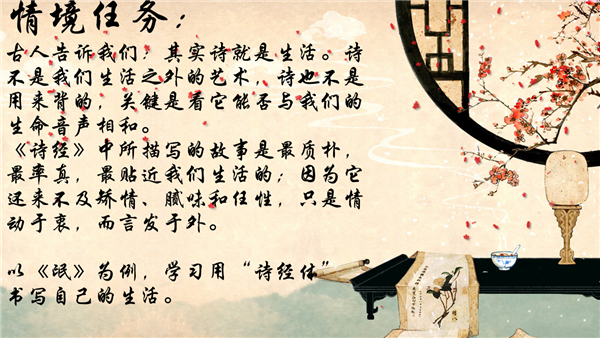 情境任务：
古人告诉我们：其实诗就是生活。诗
不是我们生活之外的艺术，诗也不是
用来背的，关键是看它能否与我们的
生命音声相和。
《诗经》中所描写的故事是最质朴，
最率真，最贴近我们生活的；因为它
还来不及矫情、腻味和任性，只是情
动于衷，而言发于外。
以《氓》为例，学习用“诗经体”
书写自己的生活。